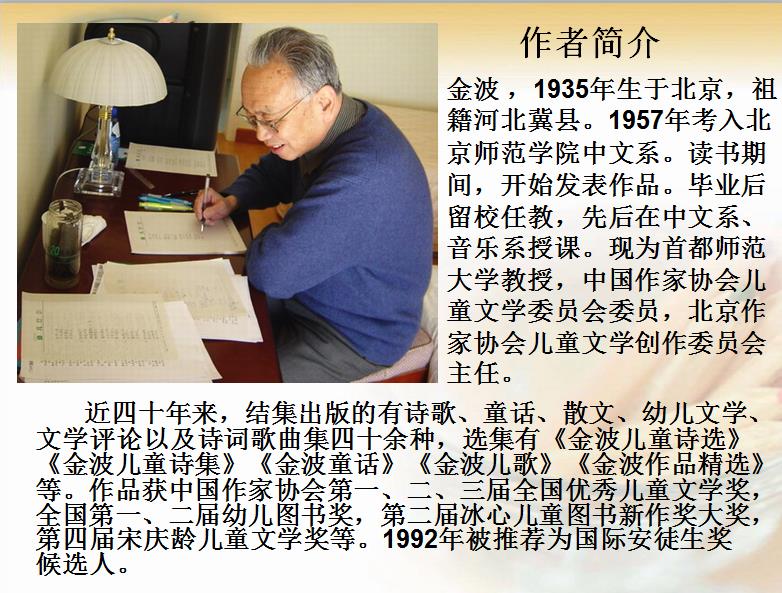 作者简介
金波 ，1935年生于北京，祖
籍河北冀县。1957年考入北
京师范学院中文系。读书期
间，开始发表作品。毕业后
留校任教，先后在中文系、
音乐系授课。现为首都师范
大学教授，中国作家协会儿
童文学委员会委员，北京作
家协会儿童文学创作委员会
主任。
近四十年来，结集出版的有诗歌、童话、散文、幼儿文学、
文学评论以及诗词歌曲集四十余种，选集有《金波儿童诗选》
《金波儿童诗集》《金波童话》《金波儿歌》《金波作品精选》
等。作品获中国作家协会第一、二、三届全国优秀儿童文学奖，
全国第一、二届幼儿图书奖，第二届冰心儿童图书新作奖大奖，
第四届宋庆龄儿童文学奖等。1992年被推荐为国际安徒生奖
候选人。